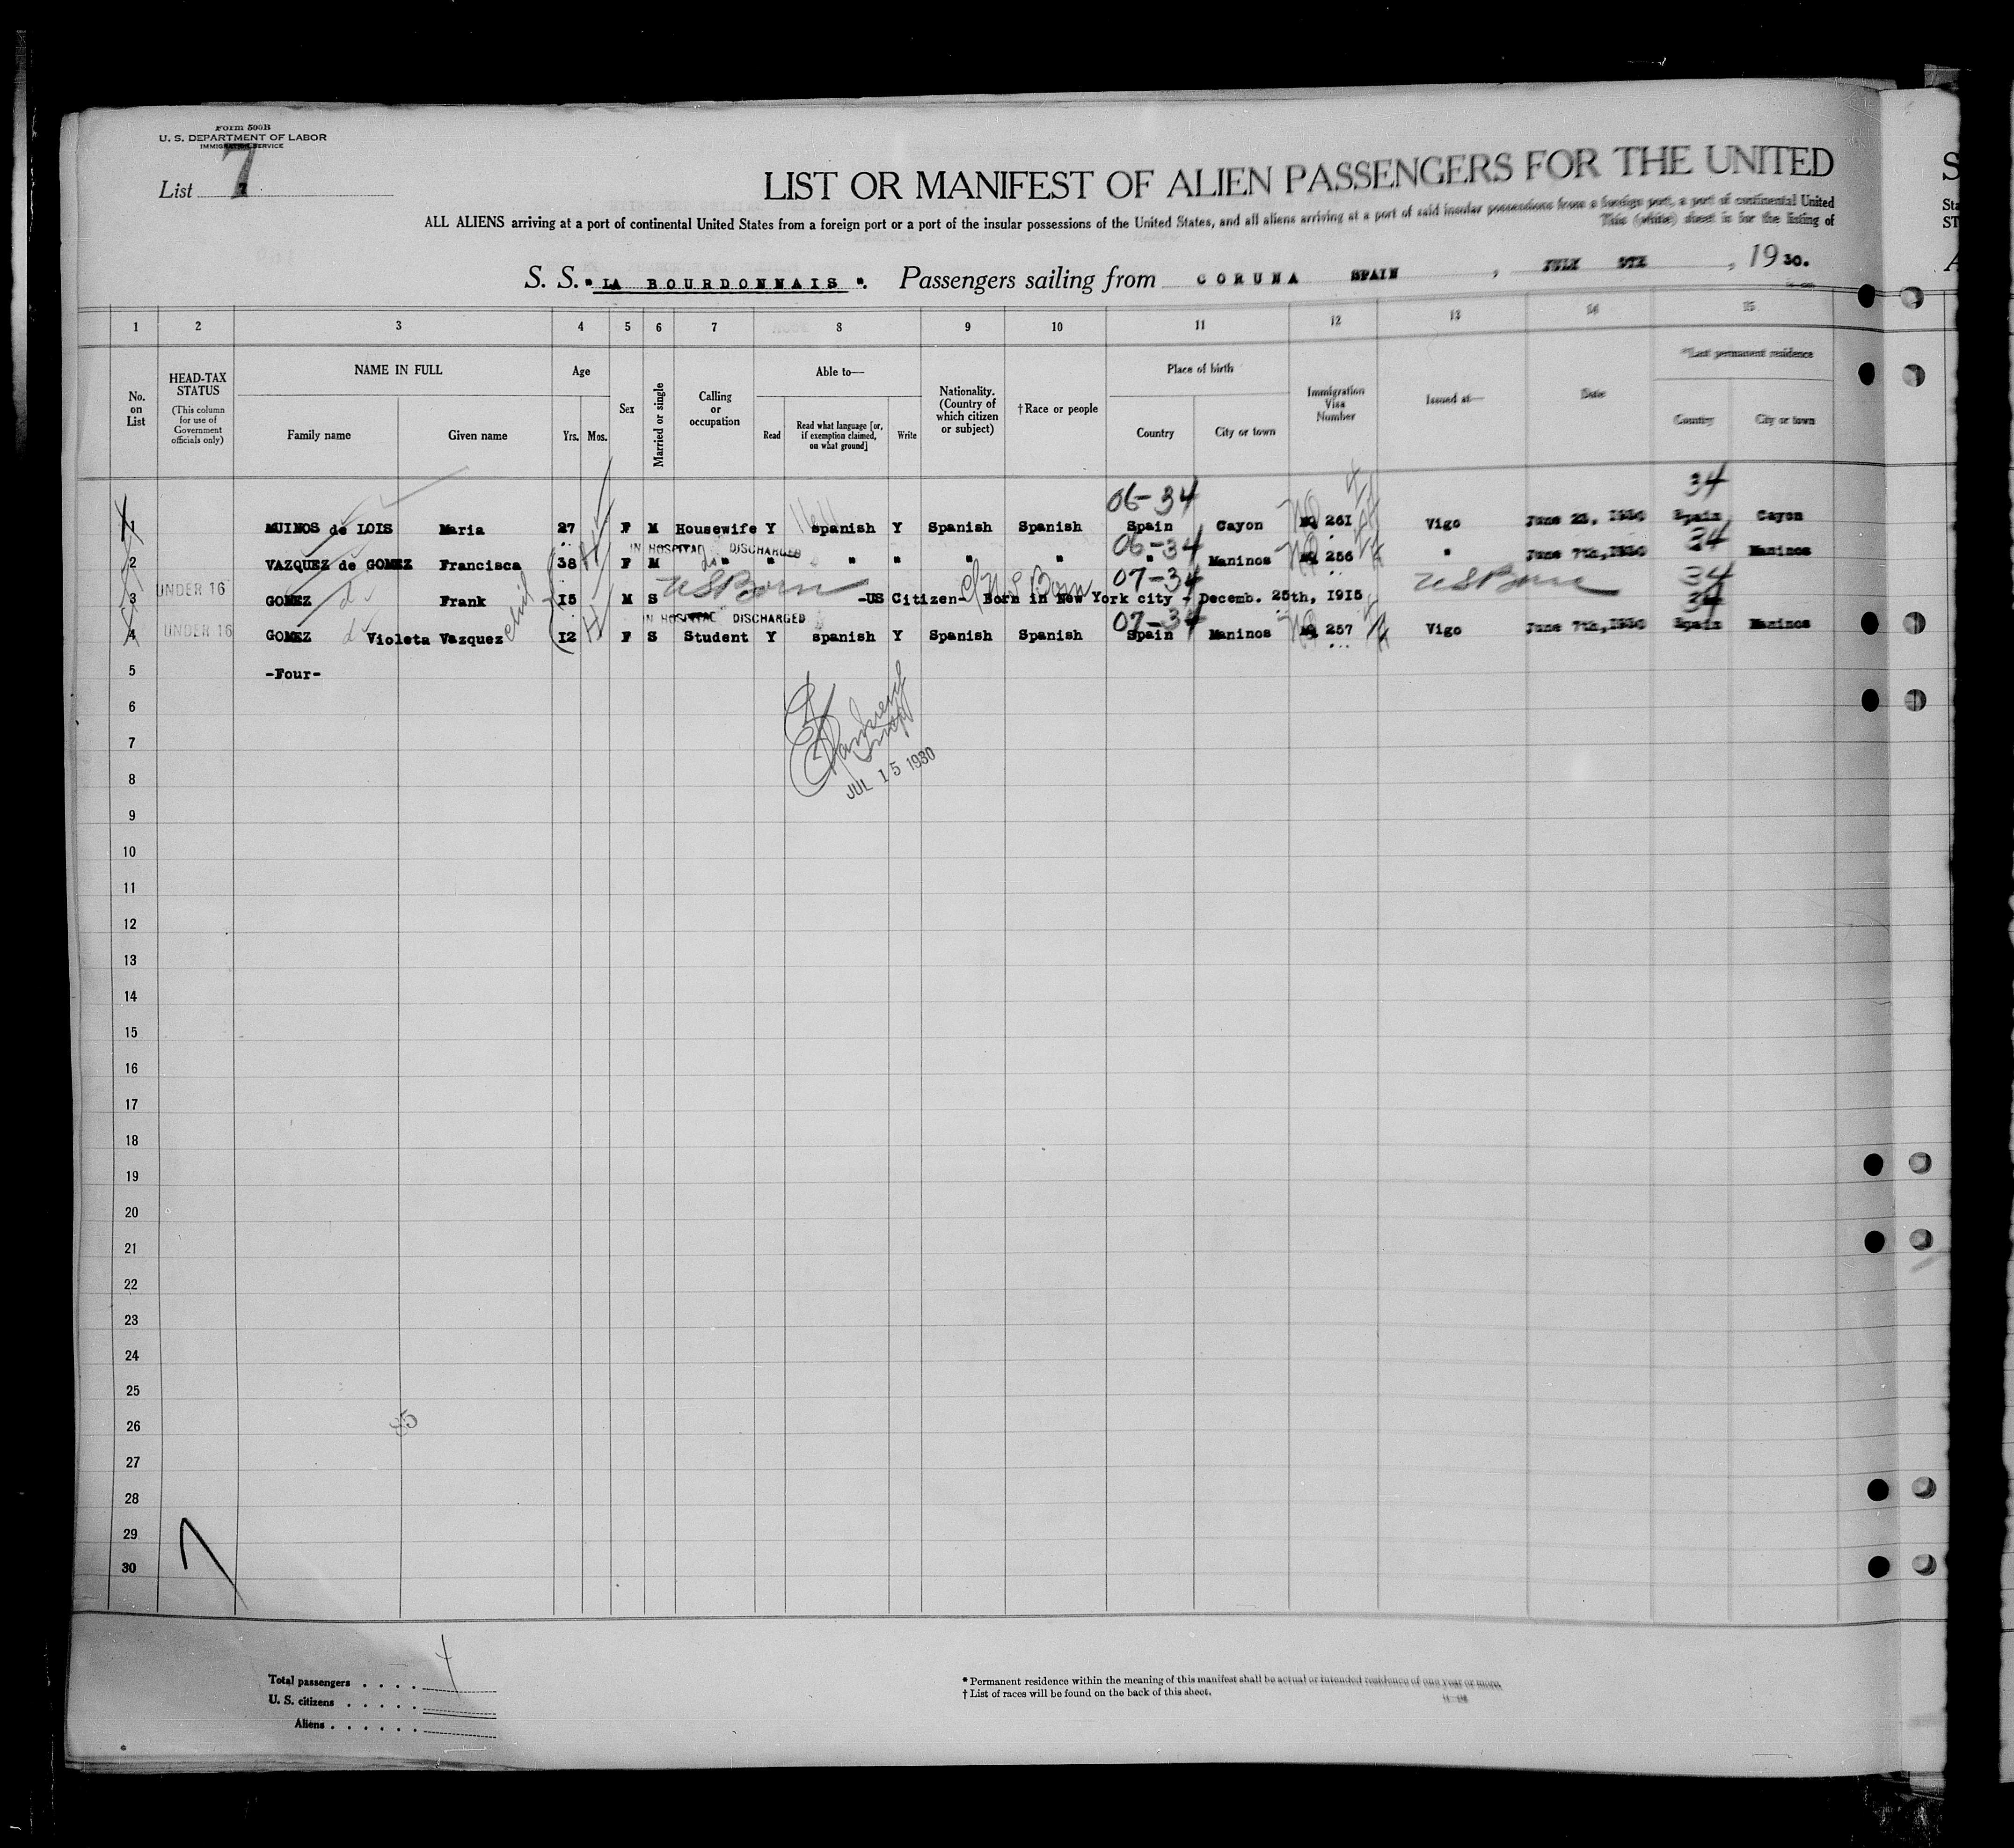 Form 500B
U. S. DEPARTMENT OF LABOR
IMMIGRATION SERVICE
List 7
LIST OR MANIFEST OF ALIEN PASSENGERS FOR THE UNITED
ALL ALIENS arriving at a port of continental United States from a foreign port or a port of the insular possessions of the United States, and all aliens arriving at a port of said insular possessions from a foreign port, a port of continental United
This (white) sheet is for the listing of
S. S. "LA BOURDONNAIS". Passengers sailing from CORUNA SPAIN, JULY, 1930.
1 2 3 4 5 6 7 8 9 10 11 12 13 14 15
No. on List
HEAD-TAX STATUS
(This column for use of Government officials only)
NAME IN FULL
Family name Given name
Age
Yrs. Mos.
Sex
Married or single
Calling or occupation
Able to—
Read
Read what language [or, if exemption claimed, on what ground]
Write
Nationality. (Country of which citizen or subject)
†Race or people
Place of birth
Country City or town
Immigration Visa Number
Issued at—
Date
*Last permanent residence
Country City or town
06-34 34
1 MUINOS de LOIS Maria 27 F M Housewife Y spanish Y Spanish Spanish Spain Cayon 261 Vigo June 23, 1930 Spain Cayon
IN HOSPITAL DISCHARGED 06-34 34
2 VAZQUEZ de GOMEZ Francisca 38 F M " " " " " " " Maninos 256 " June 7th, 1930 Maninos
UNDER 16 US Born US Born 07-34 US Born 34
3 GOMEZ Frank 15 M S -US Citizen- Born in New York city - Decemb. 25th, 1915
IN HOSPITAL DISCHARGED 07-34 34
4 UNDER 16 GOMEZ Violeta Vazquez child 12 F S Student Y spanish Y Spanish Spanish Spain Maninos 257 Vigo June 7th, 1930 Spain Maninos
5 -Four-
6
7
JUL 15 1930
8
9
10
11
12
13
14
15
16
17
18
19
20
21
22
23
24
25
26
27
28
29
30
Total passengers . . . . 4
U. S. citizens . . . . .
Aliens . . . . . .
* Permanent residence within the meaning of this manifest shall be actual or intended residence of one year or more.
† List of races will be found on the back of this sheet.